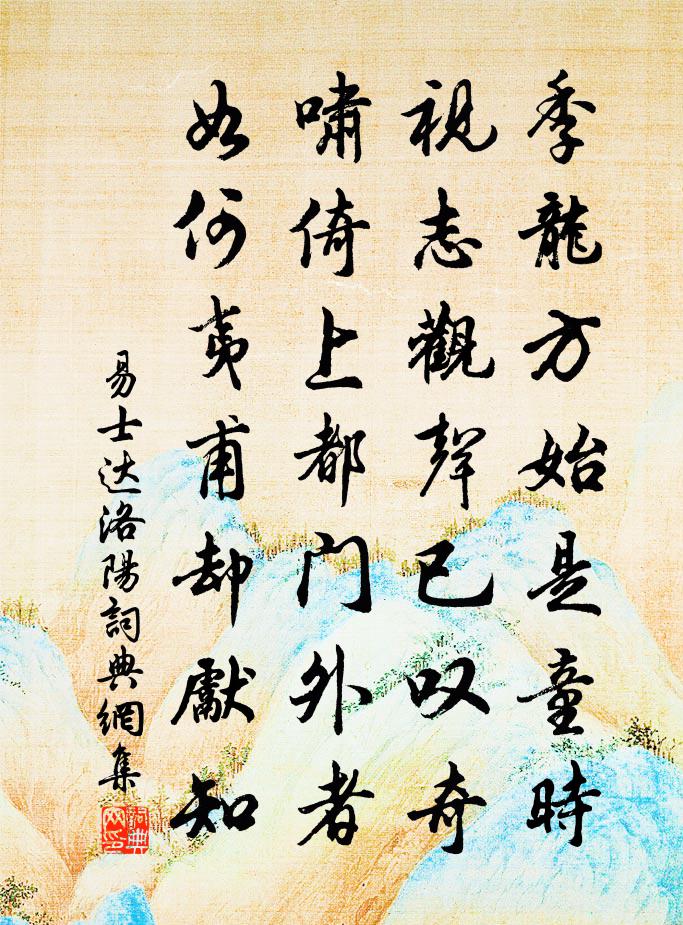 季龍方始是童時
視志觀聲已叹奇
嘯倚上都门外者
如何夷甫却獻知
易士达洛陽詞典網集
詞典
网印